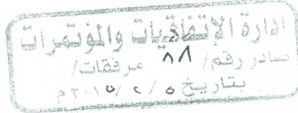 ادارة الإتفاقيات والمؤتمرات
صادر رقم/ ٨٨ مرفقات/
بتاريخ ٥ / ٢ / ٢٠١٥م